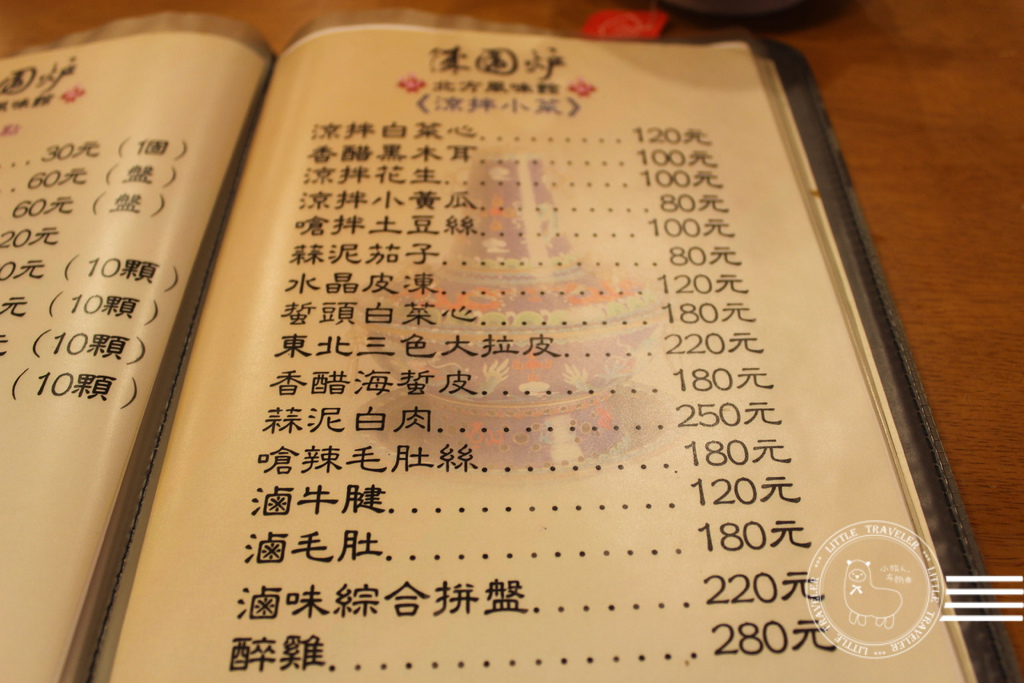 圍炉
風味館
點
30元（1個）
60元（盤）
60元（盤）
20元
0元（10顆）
元（10顆）
元（10顆）
（10顆）
圍炉
北方風味館
《涼拌小菜》
涼拌白菜心.............120元
香醋黑木耳.............100元
涼拌花生.............100元
涼拌小黃瓜.............80元
嗆拌土豆絲.............100元
蒜泥茄子.............80元
水晶皮凍.............120元
蜇頭白菜心.............180元
東北三色大拉皮......220元
香醋海蜇皮.............180元
蒜泥白肉.............250元
嗆辣毛肚絲.............180元
滷牛腱.............120元
滷毛肚.............180元
滷味綜合拼盤.......220元
醉雞.................280元
LITTLE TRAVELER
LITTLE TRAVELER